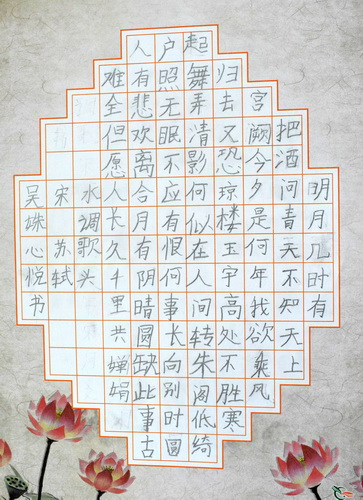 明月几时有
把酒问青天不知天上
宫阙今夕是何年我欲乘风
归去又恐琼楼玉宇高处不胜寒
起舞弄清影何似在人间转朱阁低绮
户照无眠不应有恨何事长向别时圆
人有悲欢离合月有阴晴圆缺此事古
难全但愿人长久千里共婵娟
水调歌头
宋 苏轼
吴姝心悦书